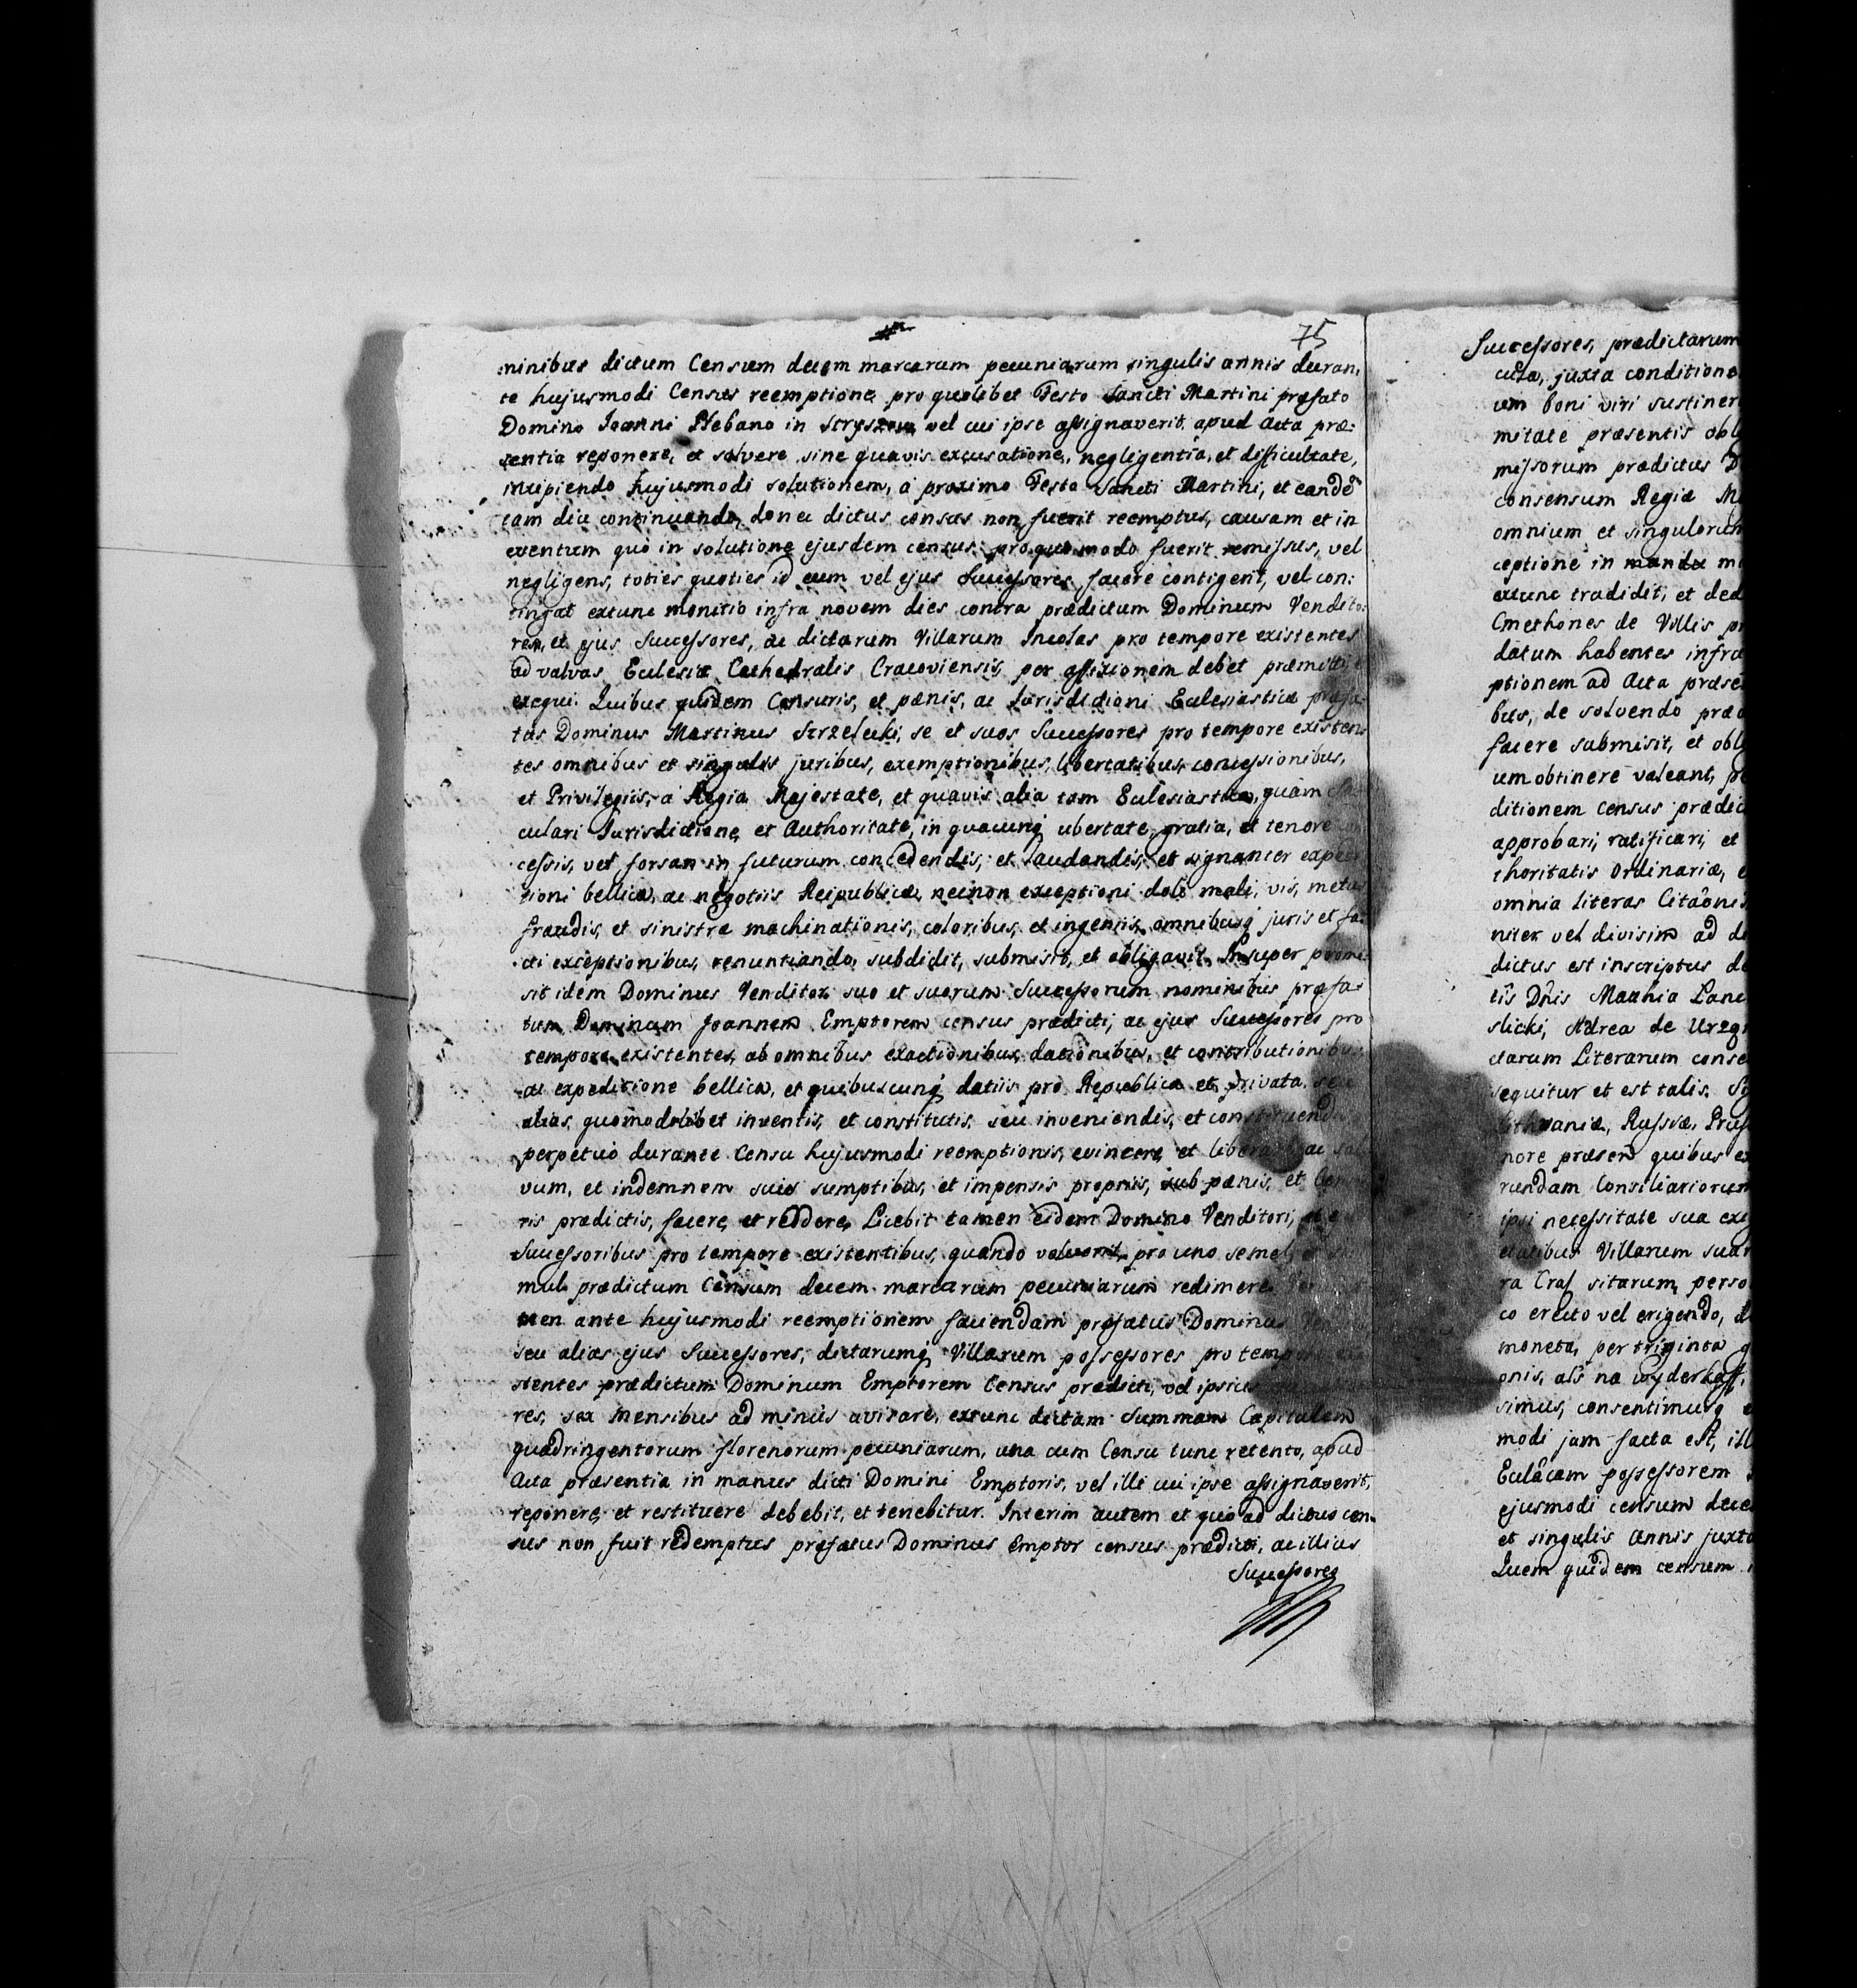 75
minibus dictum Censum decem marcarum pecuniarum singulis annis duran,
te hujusmodi Census reemptione pro quolibet Festo Sancti Martini præfato
Domino Joanni Plebano in Stryszow vel cui ipse assignaverit apud Acta præ:
sentia reponere, et solvere sine quavis excusatione, negligentia, et difficultate,
incipiendo hujusmodi solutionem, à proximo Festo Sancti Martini, et eandẽ
tam diu continuando, donec dictus census non fuerit reemptus, causam et in
eventum quò in solutione ejusdem census proquomodo fuerit remissus, vel
negligens, toties quoties id eum vel ejus Successores facere contigerit, vel con:
tingat extunc monitio infra novem dies contra prædictum Dominum Vendito:
rem, et ejus Successores, ac dictarum Villarum Incolas pro tempore existentes
ad valvas Eclesiæ Cathedralis Cracoviensis per affixionem debet præmitti,
exequi. Quibus quidem Censuris, et pænis, ac Jurisdictioni Eclesiasticæ præfa:
tus Dominus Martinus Strzelecki, se et suos Successores pro tempore existen
tes omnibus et singulis juribus, exemptionibus, libertatibus, concessionibus,
et Privilegiis, à Regia Majestate, et quavis alia tam Eclesiastica, quàm
culari Jurisdictione et Authoritate, in quacunq ubertate, gratia, et tenore
cessis, vel forsan in futurum concedendis, et laudandis, et signanter expedi
tioni bellicæ, ac negotiis Reipublicæ, necnon exceptioni doli mali, vis, metus
fraudis, et sinistræ machinationis, coloribus, et ingeniis, omnibusq juris et fa:
cti exceptionibus, renuntiando, subdidit, submisit, et obligavit. Insuper promi:
sit idem Dominus Venditor suo et suorum Successorum nominibus præfa:
tum Dominum Joannem Emptorem census prædicti, ac ejus Successores pro
tempore existentes, ab omnibus exactionibus, dationibus, et contributionibus,
ac expeditione bellica, et quibuscunq datiis pro Republica et privata, seu
alias quomodolibet inventis, et constitutis, seu inveniendis, et constituendis
perpetuò durante Censu hujusmodi reemptionis, evincere, et liberare ac sal
vum, et indemnem suis sumptibus, et impensis propriis, sub pænis, et Censu
ris prædictis, facere, et reddere, Licebit tamen eidem Domino Venditori,
Successoribus pro tempore existentibus, quando voluerit, pro uno semel, et si
mul prædictum Censum decem marcarum pecuniarum redimere.
men ante hujusmodi reemptionem faciendam præfatus Dominus
seu alias ejus Successores, dictarumq Villarum possessores pro tempore exi
stentes prædictum Dominum Emptorem Census prædicti, vel ipsius
res, sex mensibus ad minus avisare, extunc dictam Summam Capitalem
quadringentorum florenorum pecuniarum, una cum Censu tunc retento, apud
Acta præsentia in manus dicti Domini Emptoris, vel illi cui ipse assignaverit,
reponere, et restituere debebit, et tenebitur. Interim autem et quo ad dictus cen
sus non fuit redemptus præfatus Dominus Emptor census prædicti, ac illius
Successores
Successores, prædictarum
culta, juxta conditione
um boni viri sustiner
mitate præsentis obl
missorum prædictus D
consensum Regiæ M
omnium et singulorum
ceptione in manu m
extunc tradidit, et ded
Cmethones de Villis pr
datum habentes infra
ptionem ad Acta præse
bus, de solvendo præd
facere submisit, et obl
um obtinere valeant, p
ditionem census prædic
approbari, ratificari, et
thoritatis Ordinariæ, e
omnia literas Citãonis
niter vel divisim ad d
dictus est inscriptus d
tîs Dñis Mathia Lanc
slicki, Adrea de Urzę
ctarum Literarum conse
sequitur et est talis. S
Lithvaniæ, Russiæ, Prus
nore præsen quibus ex
rundam Consiliariorum
ipsi necessitate sua exi
etatibus Villarum suar
ra Craf sitarum, perso
co erecto vel erigendo, d
moneta, per triginta g
onis, als na wyderkaff,
simus, consentimusq e
modi jam facta est, ill
Eclãcam possessorem
ejusmodi censum dece
et singulis Annis juxta
Quem quidem censum